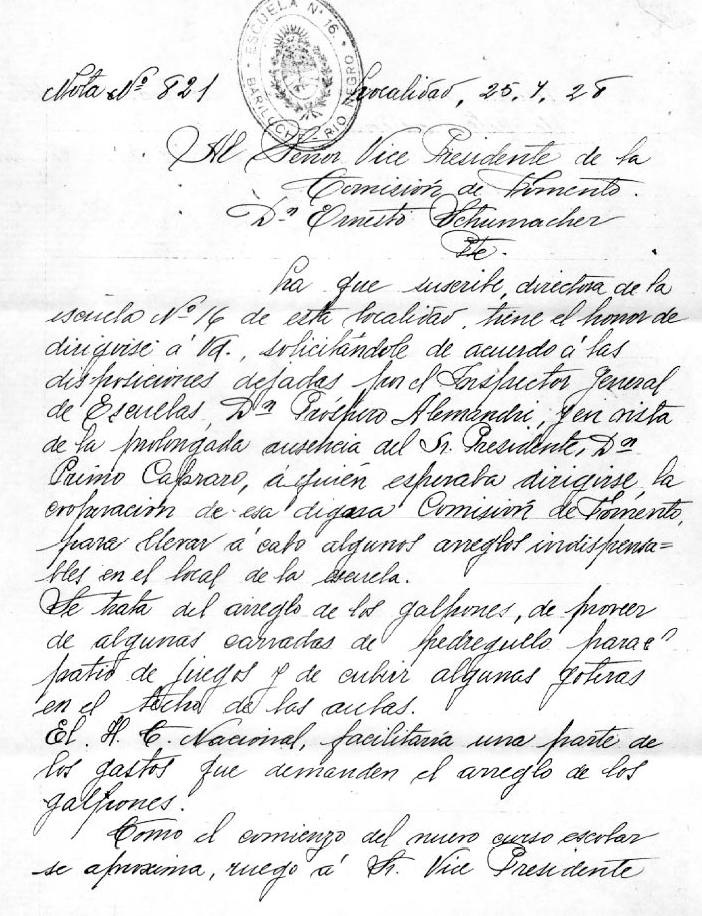 ESCUELA Nº 16.
BARILOCHE RIO NEGRO
Nota Nº 821 Localidad, 25. 7. 28
Al Señor Vice Presidente de la
Comisión de Fomento.
Dn Ernesto Schumacher
Pte.
La que suscribe, directora de la
escuela Nº 16 de esta localidad, tiene el honor de
dirigirse á Vd., solicitándole de acuerdo á las
disposiciones dejadas por el Inspector General
de Escuelas, Dn Próspero Alemandri, y en vista
de la prolongada ausencia del Sr. Presidente, Dn
Primo Capraro, á quién esperaba dirigirse, la
cooperación de esa digna Comisión de Fomento,
para llevar á cabo algunos arreglos indispensa=
bles en el local de la escuela.
Se trata del arreglo de los galpones, de proveer
de algunas carradas de pedregullo para el
patio de juegos y de cubrir algunas goteras
en el techo de las aulas.
El H. C. Nacional, facilitaría una parte de
los gastos que demanden el arreglo de los
galpones.
Como el comienzo del nuevo curso escolar
se aproxima, ruego á Sr. Vice Presidente